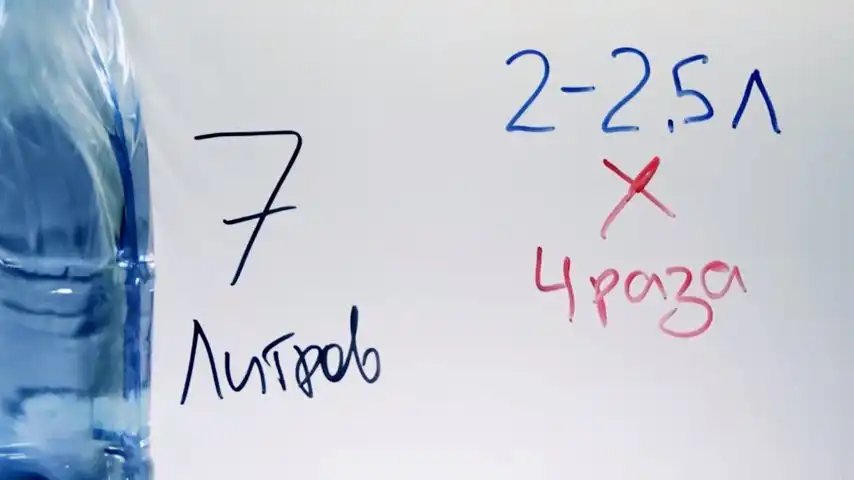 7
литров
2-2,5 л
×
4 раза